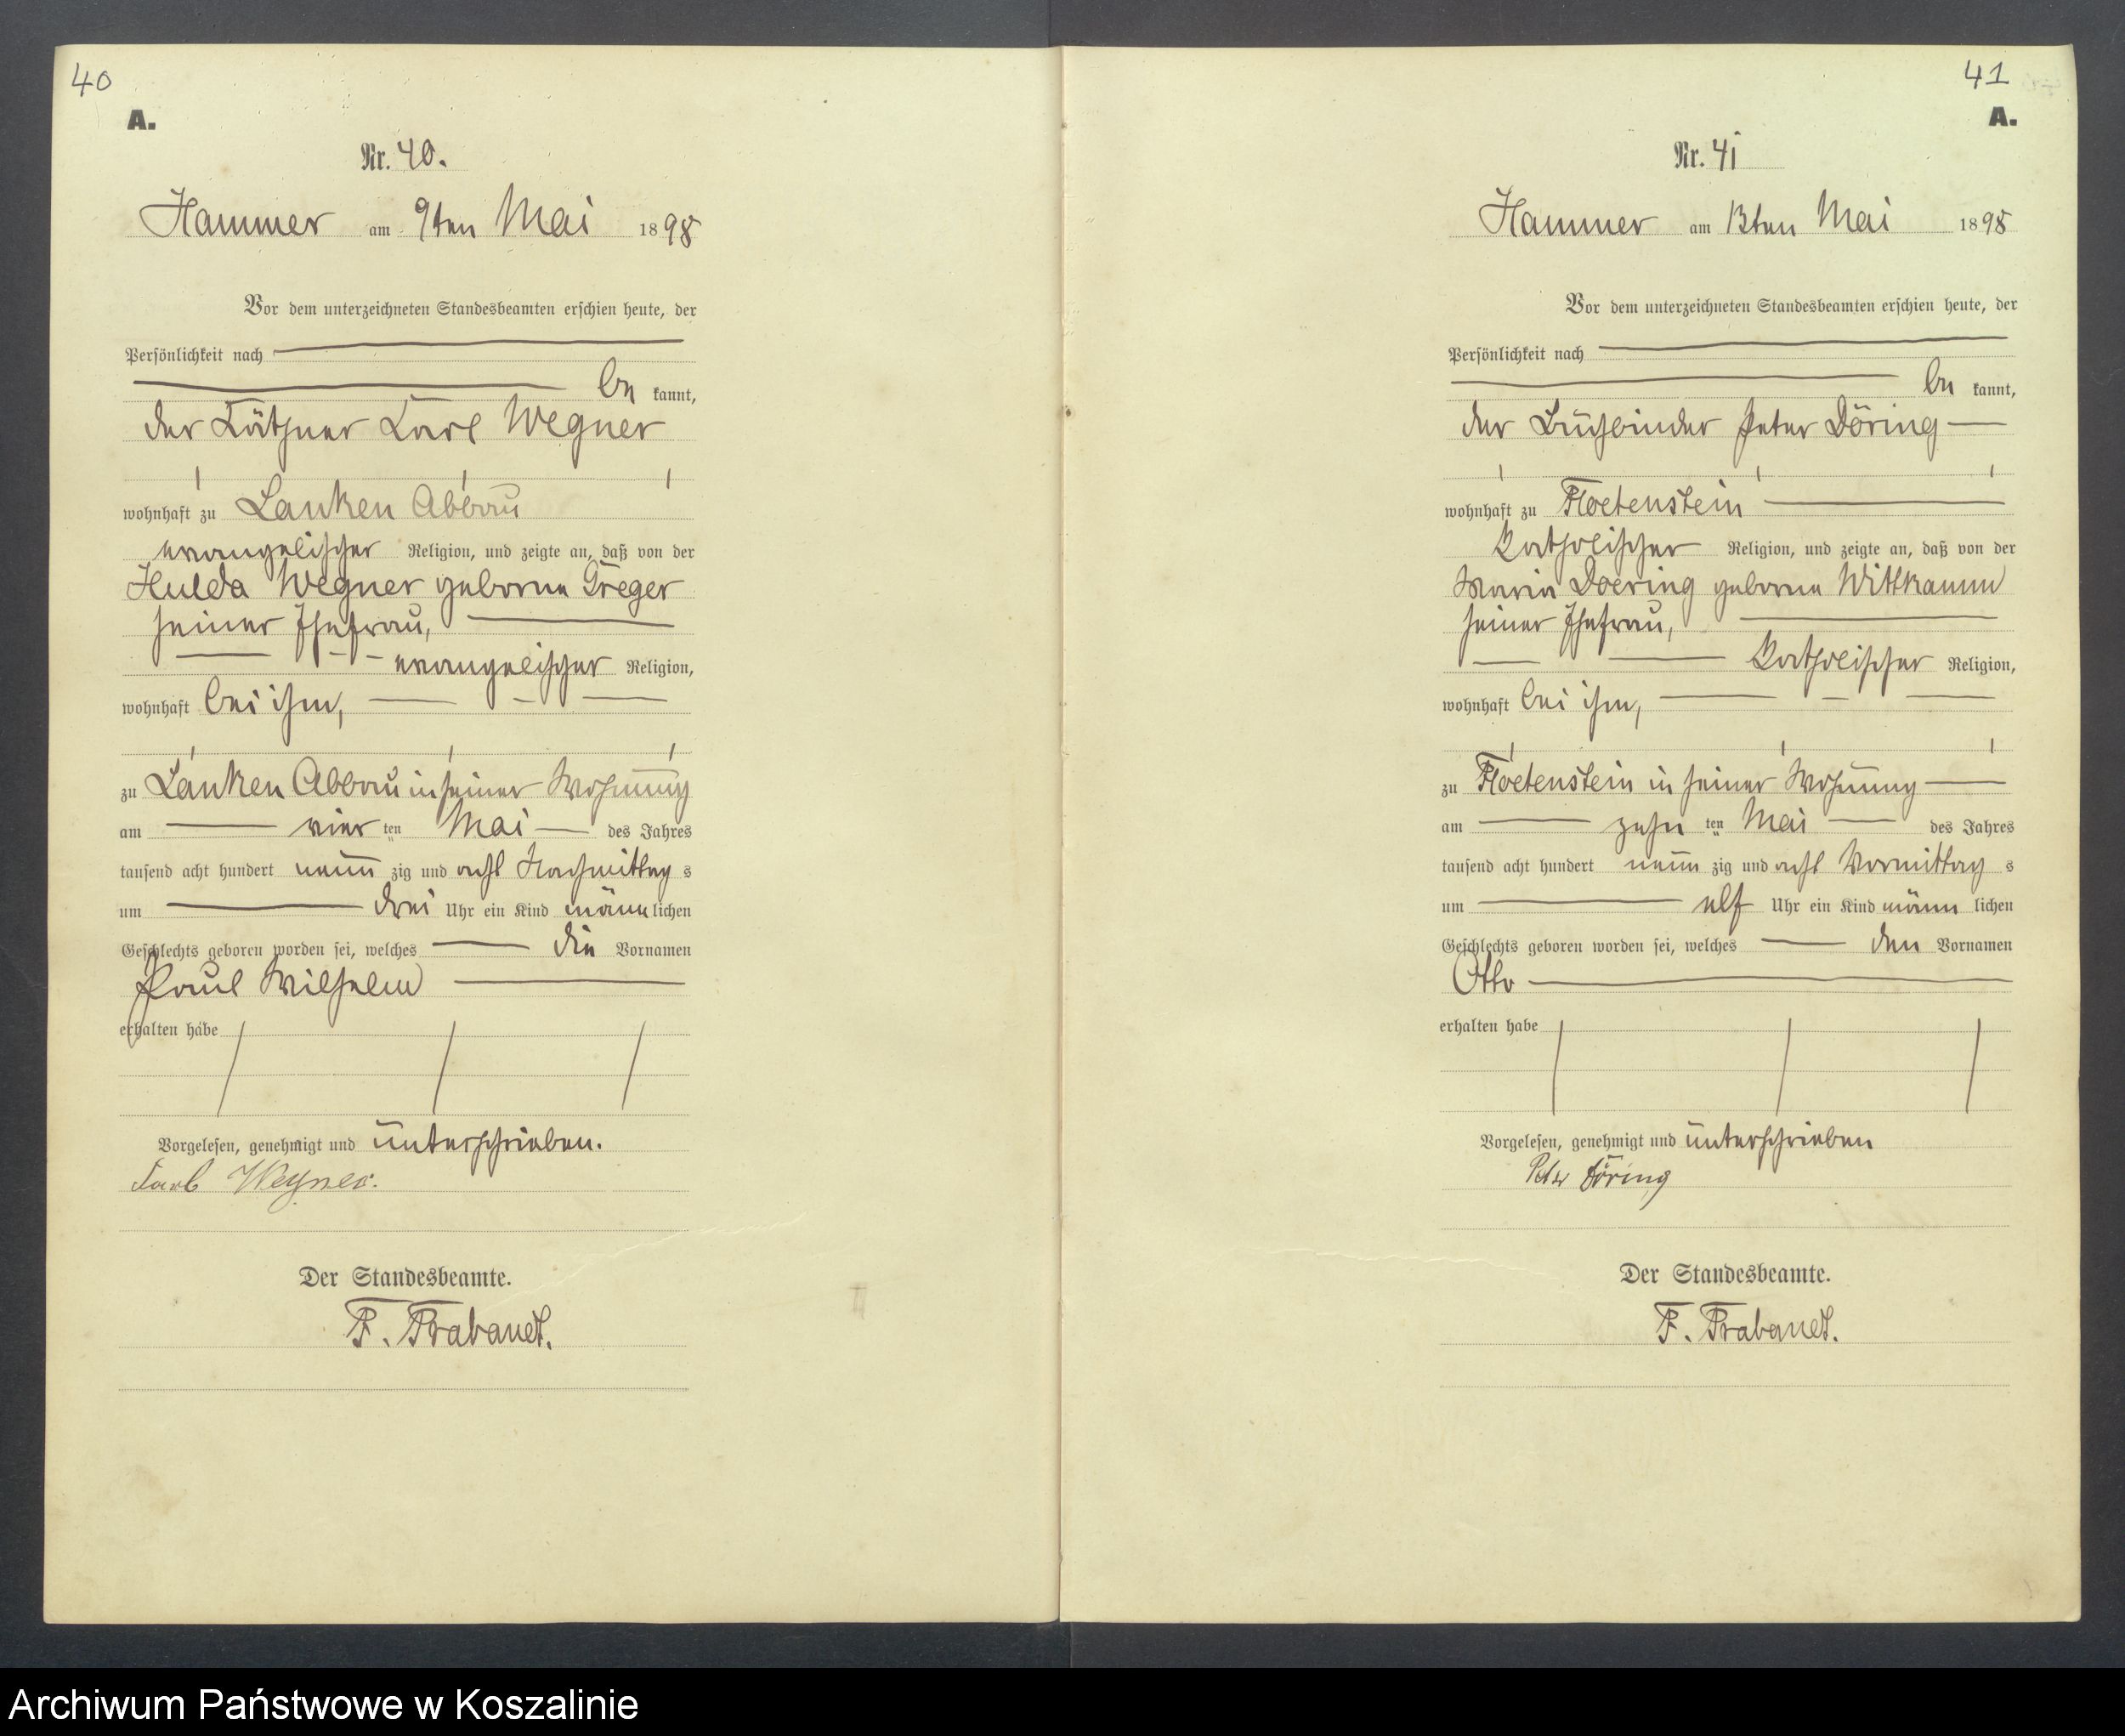 40
A.
Nr. 40.
Hammer am 9ten Mai 1898
Vor dem unterzeichneten Standesbeamten erschien heute, der
Persönlichkeit nach
be kannt,
der Käthner Karl Wegner
wohnhaft zu Lanken Abbau
evangelischer Religion, und zeigte an, daß von der
Hulda Wegner geborne Greger
seiner Ehefrau,
evangelischer Religion,
wohnhaft bei ihm,
zu Lanken Abbau in seiner Wohnung
am vier ten Mai des Jahres
tausend acht hundert neun zig und acht Nachmittag s
um drei Uhr ein Kind männ lichen
Geschlechts geboren worden sei, welches die Vornamen
Paul Wilhelm
erhalten habe
Vorgelesen, genehmigt und unterschrieben.
Karl Wegner.
Der Standesbeamte.
F. Trabandt.
41
A.
Nr. 41
Hammer am 13ten Mai 1898
Vor dem unterzeichneten Standesbeamten erschien heute, der
Persönlichkeit nach
be kannt,
der Buchbinder Peter Döring
wohnhaft zu Floetenstein
katholischer Religion, und zeigte an, daß von der
Maria Doering geborne Wittkamm
seiner Ehefrau,
katholischer Religion,
wohnhaft bei ihm,
zu Floetenstein in seiner Wohnung
am zehn ten Mai des Jahres
tausend acht hundert neun zig und acht Vormittag s
um elf Uhr ein Kind männ lichen
Geschlechts geboren worden sei, welches den Vornamen
Otto
erhalten habe
Vorgelesen, genehmigt und unterschrieben
Peter Döring
Der Standesbeamte.
F. Trabandt.
Archiwum Państwowe w Koszalinie